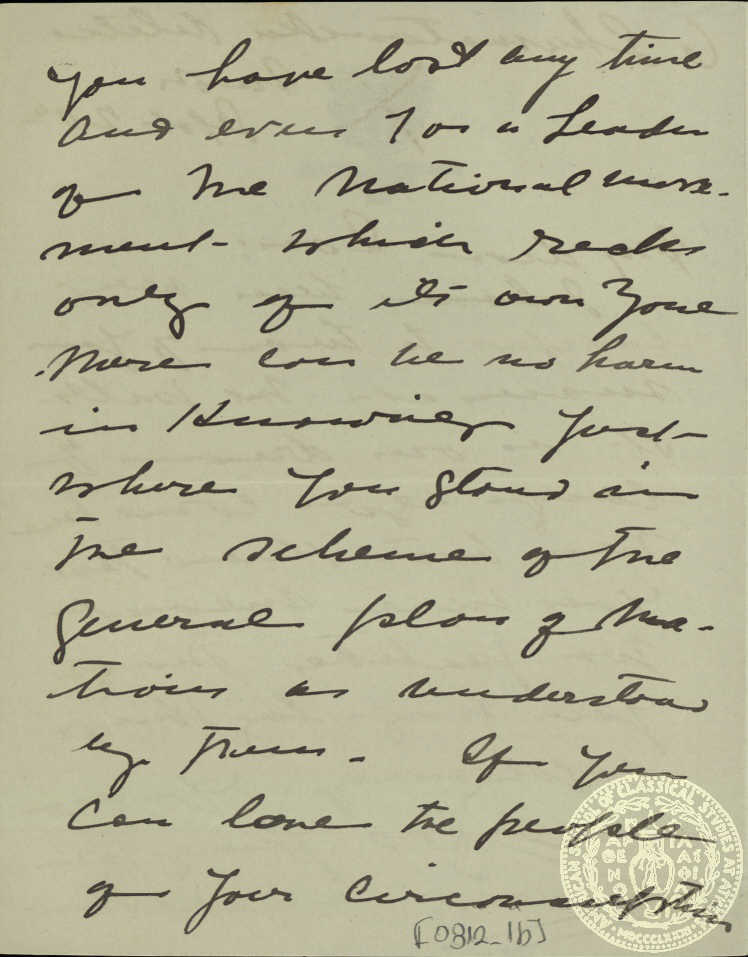 you have lost any time
and even for a Leader
of the National move-
ment - which recks
only of its own zone
there can be no harm
in knowing just
where you stand in
the scheme of the
general plan of Na-
tions as understood
by them - If you
can love the people
of your circumscription
[0812_1b]
AMERICAN SCHOOL OF CLASSICAL STUDIES AT ATHENS
ΠΑΡ ΘΕ ΝΟ
MDCCCLXXXI